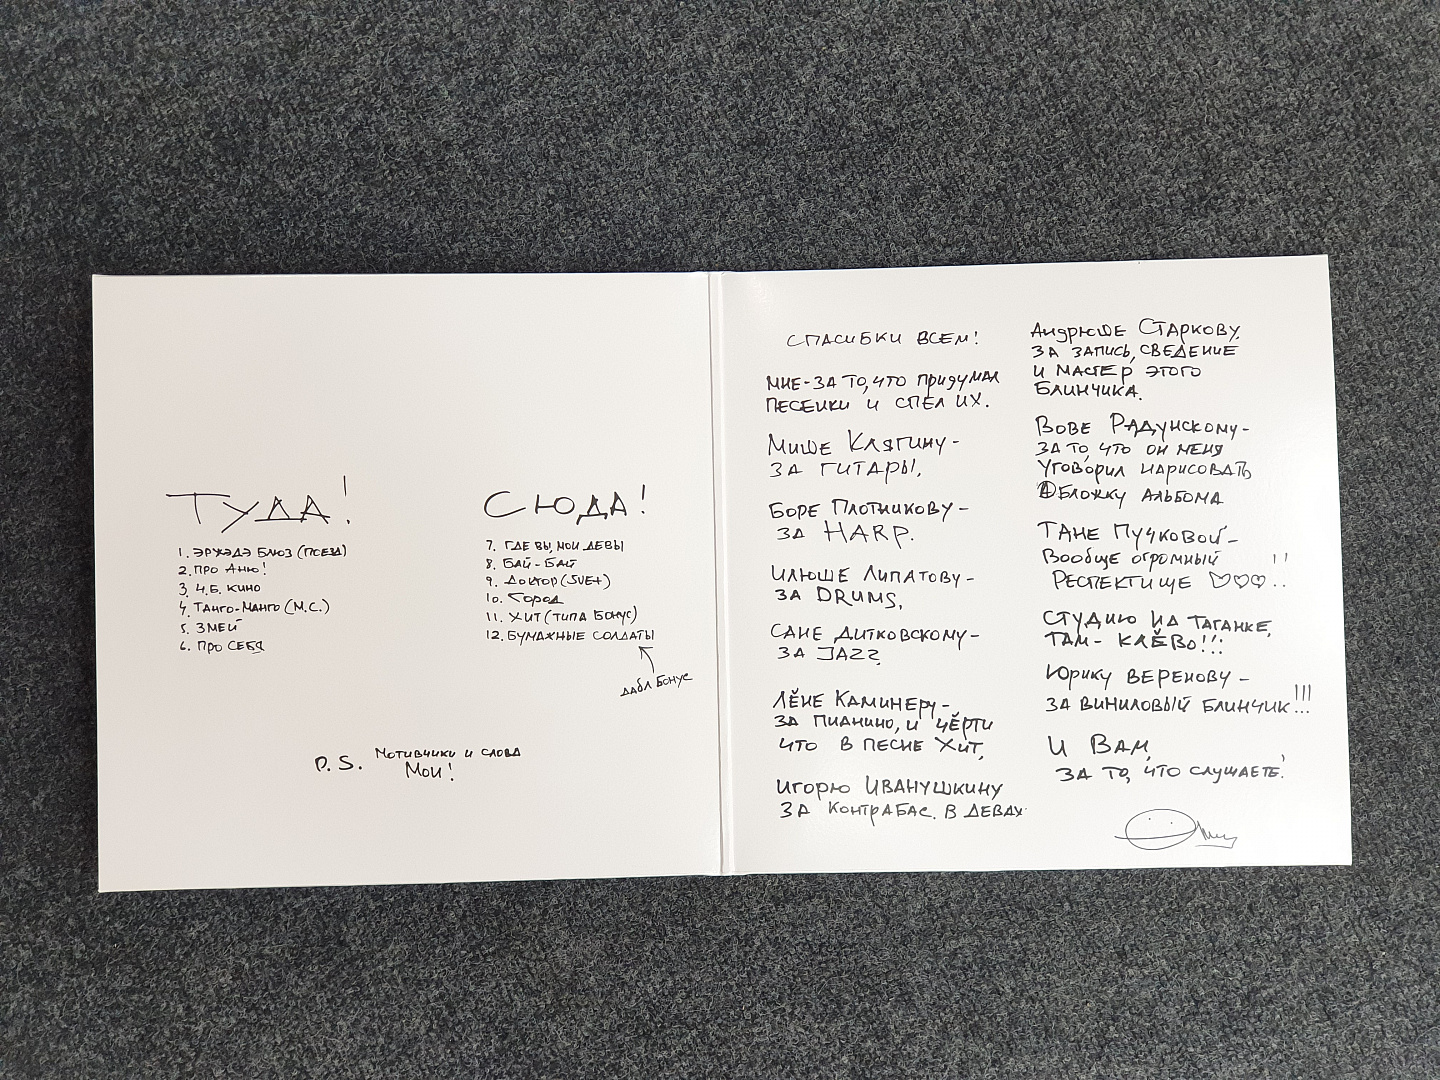 ТУДА!
1. ЭРЖЭДЭ БЛЮЗ (ПОЕЗД)
2. ПРО АНЮ!
3. Ч.Б. КИНО
4. ТАНГО-МАНГО (М.С.)
5. ЗМЕЙ
6. ПРО СЕБЯ
СЮДА!
7. ГДЕ ВЫ, МОИ ДЕВЫ
8. БАЙ-БАЙ
9. ДОКТОР (SVET)
10. ГОРОД
11. ХИТ (ТИПА БОНУС)
12. БУМАЖНЫЕ СОЛДАТЫ
ДАБЛ БОНУС
P.S. МОТИВЧИКИ И СЛОВА
МОИ!
СПАСИБКИ ВСЕМ!
МНЕ-ЗА ТО, ЧТО ПРИДУМАЛ
ПЕСЕНКИ И СПЕЛ ИХ.
МИШЕ КЛЯГИНУ-
ЗА ГИТАРЫ,
БОРЕ ПЛОТНИКОВУ-
ЗА HARP.
ИЛЮШЕ ЛИПАТОВУ-
ЗА DRUMS,
САНЕ ДИТКОВСКОМУ-
ЗА JAZZ,
ЛЁНЕ КАМИНЕРУ-
ЗА ПИАНИНО, И ЧЁРТИ
ЧТО В ПЕСНЕ ХИТ,
ИГОРЮ ИВАНУШКИНУ
ЗА КОНТРАБАС. В ДЕВАХ
АНДРЮШЕ СТАРКОВУ.
ЗА ЗАПИСЬ, СВЕДЕНИЕ
И МАСТЕР ЭТОГО
БЛИНЧИКА.
ВОВЕ РАДУНСКОМУ-
ЗА ТО, ЧТО ОН МЕНЯ
УГОВОРИЛ НАРИСОВАТЬ
ОБЛОЖКУ АЛЬБОМА
ТАНЕ ПУЧКОВОЙ-
ВООБЩЕ ОГРОМНЫЙ
РЕСПЕКТИЩЕ ♡♡♡!!
СТУДИЮ НА ТАГАНКЕ,
ТАМ- КЛЁВО!!!
ЮРИКУ ВЕРЕНОВУ-
ЗА ВИНИЛОВЫЙ БЛИНЧИК!!!
И ВАМ,
ЗА ТО, ЧТО СЛУШАЕТЕ!